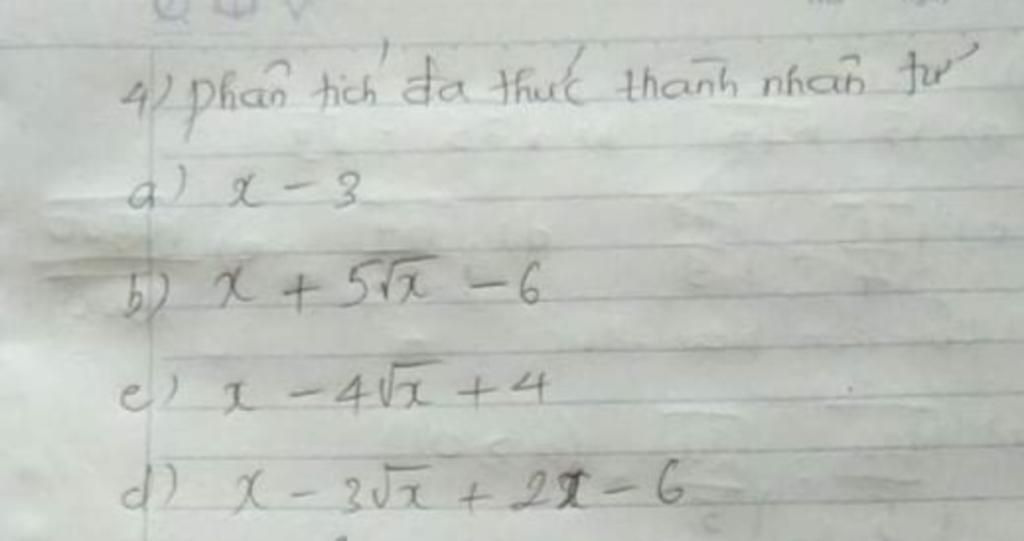 4) phân tích đa thức thành nhân tử
a) x - 3
b) x + 5√x - 6
c) x - 4√x + 4
d) x - 3√x + 2x - 6